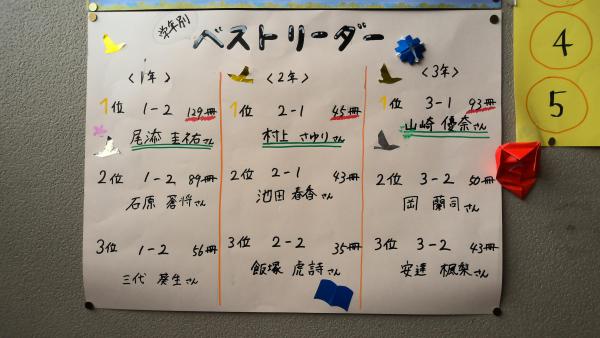 学年別
ベストリーダー
〈1年〉
1位 1-2 129冊
尾添 圭祐さん
2位 1-2 89冊
石原 蒼将さん
3位 1-2 56冊
三代 葵生さん
〈2年〉
1位 2-1 45冊
村上 さゆりさん
2位 2-1 43冊
池田 春香さん
3位 2-2 35冊
飯塚 虎詩さん
〈3年〉
1位 3-1 93冊
山崎 優奈さん
2位 3-2 50冊
岡 蘭司さん
3位 3-2 43冊
安達 楓梨さん
4
5